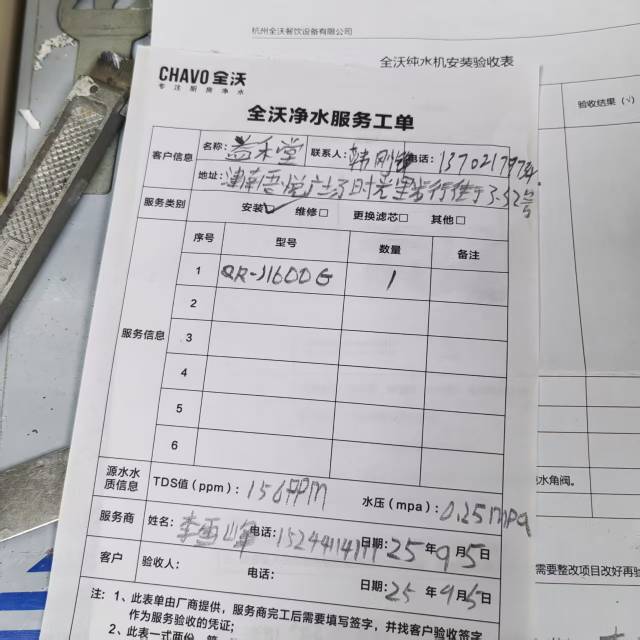 杭州全沃餐饮设备有限公司
全沃纯水机安装验收表
验收结果（√）
CHAVO 全沃
专注厨房净水
全沃净水服务工单
客户信息
名称：益禾堂 联系人：韩刚 电话：
地址：
服务类别 安装☑ 维修□ 更换滤芯□ 其他□
服务信息
序号 型号 数量 备注
1 QR-J1600G 1
2
3
4
5
6
源水水质信息 TDS值（ppm）：156PPM 水压（mpa）：0.25mpa
服务商 姓名：李雪山 电话： 日期：25年9月5日
客户 验收人： 电话： 日期：25年9月5日
注：1、此表单由厂商提供，服务商完工后需要填写签字，并找客户验收签字
作为服务验收的凭证；
2、此表一式两份，
水角阀。
需要整改项目改好再验